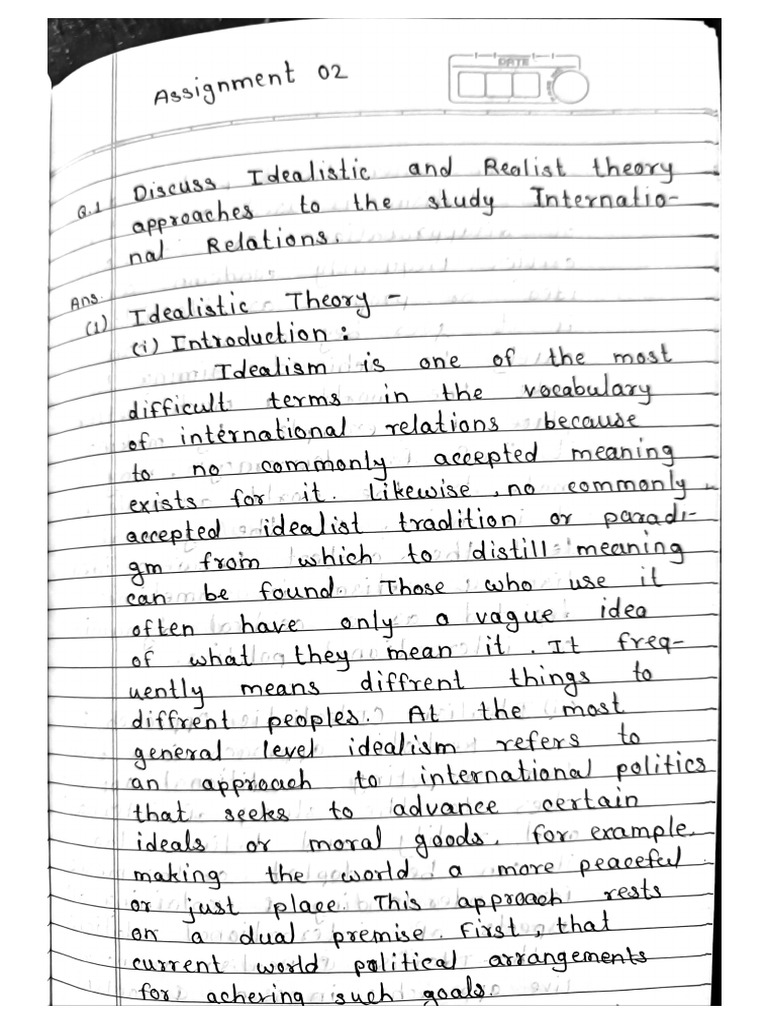 Assignment 02
DATE
Q.1 Discuss Idealistic and Realist theory
approaches to the study Internatio-
nal Relations.
Ans.
(1) Idealistic Theory -
(i) Introduction :
Idealism is one of the most
difficult terms in the vocabulary
of international relations because
to no commonly accepted meaning
exists for it. Likewise, no commonly
accepted idealist tradition or paradi-
gm from which to distill meaning
can be found. Those who use it
often have only a vague idea
of what they mean it. It freq-
uently means diffrent things to
diffrent peoples. At the most
general level idealism refers to
an approach to international politics
that seeks to advance certain
ideals or moral goods, for example
making the world a more peaceful
or just place. This approach rests
on a dual premise. First, that
current world political arrangements
for achering such goals.